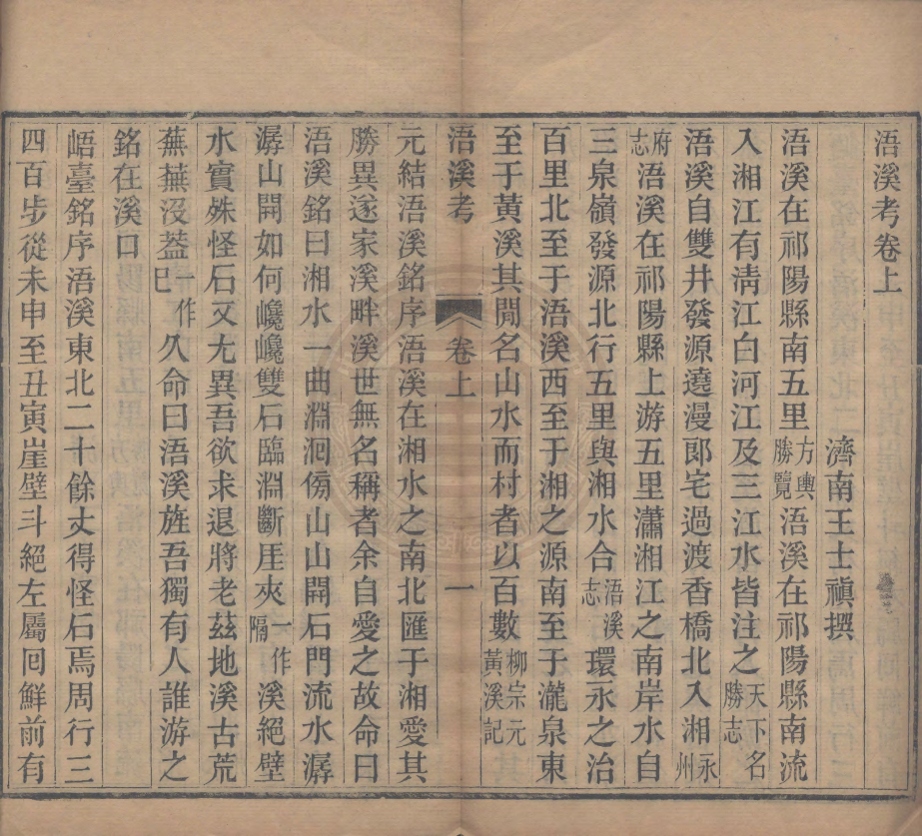 浯溪考卷上
濟南王士禛撰
浯溪在祁陽縣南五里方輿勝覽浯溪在祁陽縣南流
入湘江有淸江白河江及三江水皆注之天下名勝志
浯溪自雙井發源遶漫郎宅過渡香橋北入湘永州
府志浯溪在祁陽縣上游五里瀟湘江之南岸水自
三泉嶺發源北行五里與湘水合浯溪志環永之治
百里北至于浯溪西至于湘之源南至于瀧泉東
至于黃溪其閒名山水而村者以百數柳宗元黃溪記
浯溪考 卷上 一
元結浯溪銘序浯溪在湘水之南北匯于湘愛其
勝異遂家溪畔溪世無名稱者余自愛之故命曰
浯溪銘曰湘水一曲淵洄傍山山開石門流水潺
潺山開如何巉巉雙石臨淵斷厓夾一作隔溪絕壁
水實殊怪石又尤異吾欲求退將老茲地溪古荒
蕪蕪沒葢一作已久命曰浯溪旌吾獨有人誰游之
銘在溪口
峿臺銘序浯溪東北二十餘丈得怪石焉周行三
四百步從未申至丑寅崖壁斗絕左屬回鮮前有